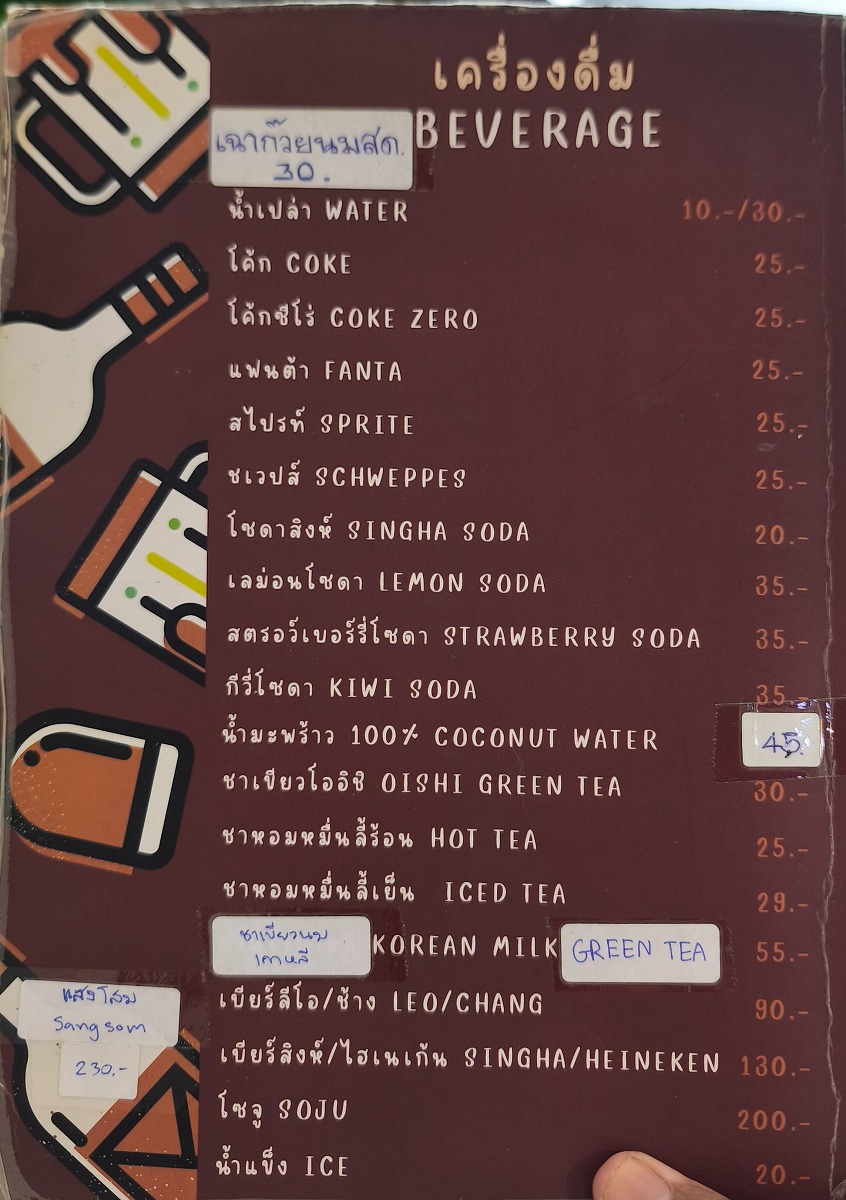 เครื่องดื่ม
BEVERAGE
เฉาก๊วยนมสด.
30.
น้ำเปล่า WATER 10.-/30.-
โค้ก COKE 25.-
โค้กซีโร่ COKE ZERO 25.-
แฟนต้า FANTA 25.-
สไปรท์ SPRITE 25.-
ชเวปส์ SCHWEPPES 25.-
โซดาสิงห์ SINGHA SODA 20.-
เลม่อนโซดา LEMON SODA 35.-
สตรอว์เบอร์รี่โซดา STRAWBERRY SODA 35.-
กีวี่โซดา KIWI SODA 35.-
น้ำมะพร้าว 100% COCONUT WATER 45.
ชาเขียวโออิชิ OISHI GREEN TEA 30.-
ชาหอมหมื่นลี้ร้อน HOT TEA 25.-
ชาหอมหมื่นลี้เย็น ICED TEA 29.-
ชาเขียวนม
เกาหลี
KOREAN MILK GREEN TEA 55.-
แสงโสม
Sangsom
230.-
เบียร์ลีโอ/ช้าง LEO/CHANG 90.-
เบียร์สิงห์/ไฮเนเก้น SINGHA/HEINEKEN 130.-
โซจู SOJU 200.-
น้ำแข็ง ICE 20.-